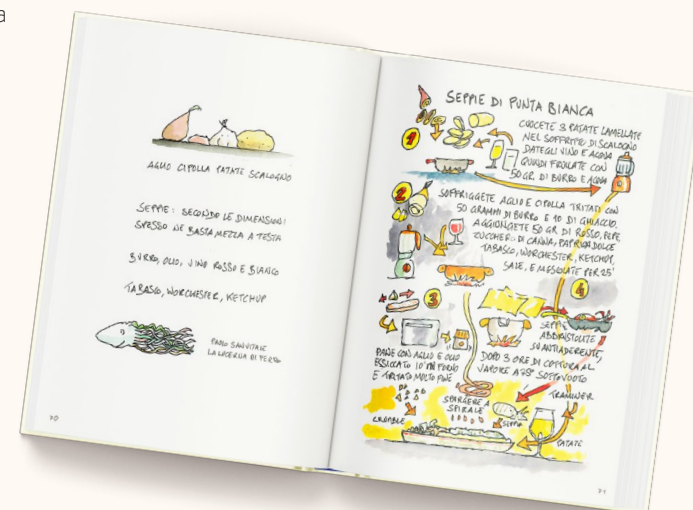 a
AGLIO CIPOLLA PATATE SCALOGNO
SEPPIE: SECONDO LE DIMENSIONI
SPESSO NE BASTA MEZZA A TESTA
BURRO, OLIO, VINO ROSSO E BIANCO
TABASCO, WORCHESTER, KETCHUP
PAOLO SANVITALE
LA LUCERNA DI FERRO
70
SEPPIE DI PUNTA BIANCA
1
CUOCETE 3 PATATE LAMELLATE
NEL SOFFRITTO DI SCALOGNO
DATEGLI VINO E ACQUA
QUINDI FRULLATE CON
50 GR. DI BURRO E ACQUA
2
SOFFRIGGETE AGLIO E CIPOLLA TRITATI CON
50 GRAMMI DI BURRO E 10 DI GHIACCIO,
AGGIUNGETE 50 GR DI ROSSO, PEPE
ZUCCHERO DI CANNA, PAPRICA DOLCE
TABASCO, WORCHESTER, KETCHUP,
SALE, E MESCOLATE PER 25'
3
4
PANE CON AGLIO E OLIO
ESSICCATO 10' IN FORNO
E TRITATO MOLTO FINE
SEPPIE
ABBRUSTOLITE
SU ANTIADERENTE,
DOPO 3 ORE DI COTTURA AL
VAPORE A 75° SOTTOVUOTO
TRAMINER
SPARGERE A
SPIRALE
CRUMBLE
SEPPIA
PATATE
71